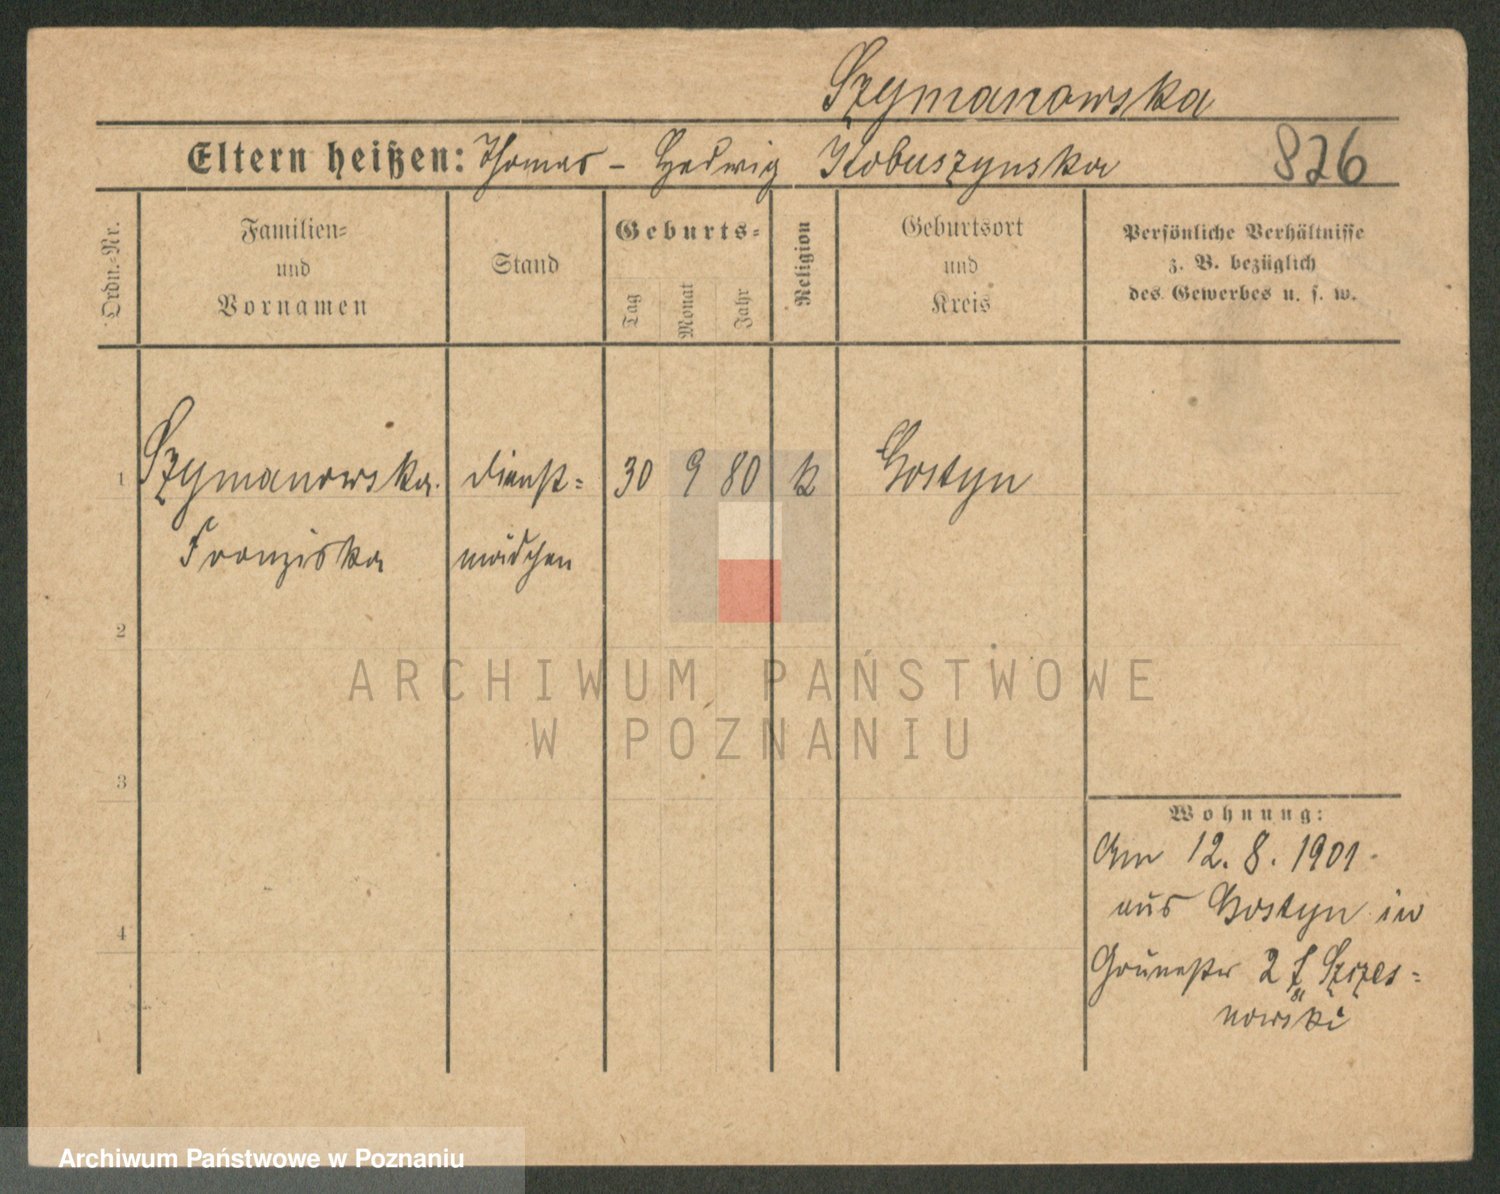 Szymanowska
Eltern heißen: Thomas – Hedwig Kobuszynska 826
Ordn.-Nr.
Familien- und Vornamen
Stand
Geburts-
Tag Monat Jahr
Religion
Geburtsort und Kreis
Persönliche Verhältnisse
z. B. bezüglich
des Gewerbes u. s. w.
1 Szymanowska. Dienst= 30 9 80 k Gostyn
Franziska mädchen
2
3
4
ARCHIWUM PAŃSTWOWE
W POZNANIU
Wohnung:
Am 12. 8. 1901.
aus Gostyn in
2
nowski
Archiwum Państwowe w Poznaniu